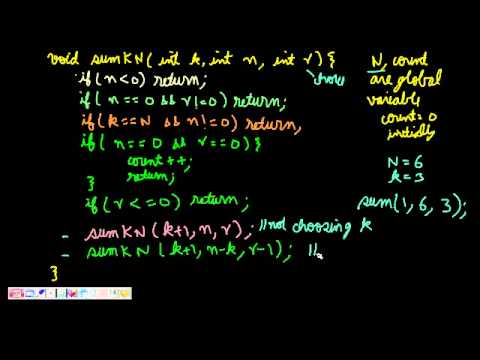 void sumKN( int k, int n, int r) {
if( n<0) return;
if( n == 0 && r!=0) return;
if( k==N && n!=0) return,
if( n == 0 && r==0) {
count++;
return;
}
if( r <=0) return ;
- sumKN (k+1, n, r); //not choosing k
- sumKN ( k+1, n-k, r-1); //
}
N, count
are global
variable
count=0
initially
N=6
k=3
sum(1, 6, 3);